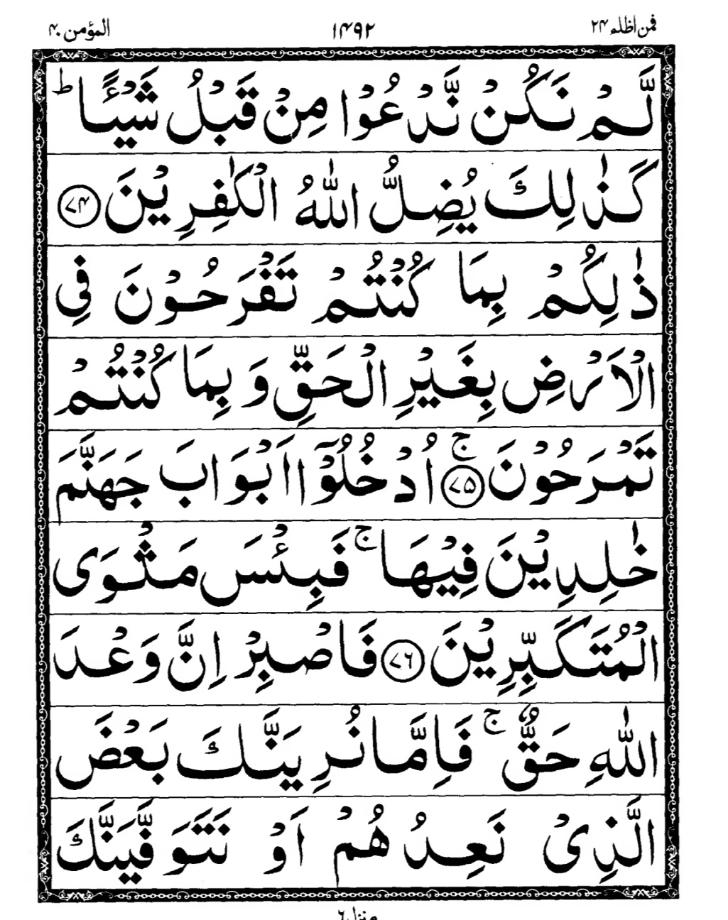 فمن اظلم ۲۴ ۱۴۹۲ المؤمن ۴۰
لَّمْ نَكُنْ نَّدْعُوْا مِنْ قَبْلُ شَيْـًٔا ؕ
كَذٰلِكَ يُضِلُّ اللّٰهُ الْكٰفِرِيْنَ ۷۴
ذٰلِكُمْ بِمَا كُنْتُمْ تَفْرَحُوْنَ فِي
الْاَرْضِ بِغَيْرِ الْحَقِّ وَ بِمَا كُنْتُمْ
تَمْرَحُوْنَ ۷۵ ۚ اُدْخُلُوْۤا اَبْوَابَ جَهَنَّمَ
خٰلِدِيْنَ فِيْهَا ۚ فَبِئْسَ مَثْوَى
الْمُتَكَبِّرِيْنَ ۷۶ فَاصْبِرْ اِنَّ وَعْدَ
اللّٰهِ حَقٌّ ۚ فَاِمَّا نُرِيَنَّكَ بَعْضَ
الَّذِيْ نَعِدُهُمْ اَوْ نَتَوَفَّيَنَّكَ
منزل ۶